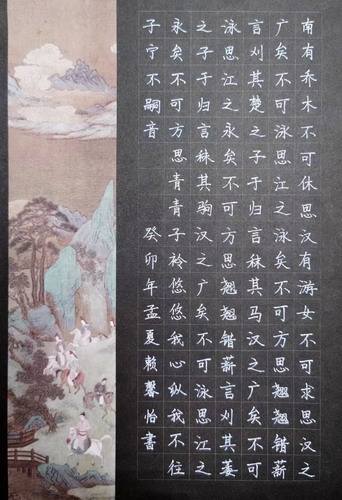 南有乔木不可休思汉有游女不可求思汉之
广矣不可泳思江之泳矣不可方思翘翘错薪
言刈其楚之子于归言秣其马汉之广矣不可
泳思江之永矣不可方思翘翘错薪言刈其蒌
之子于归言秣其驹汉之广矣不可泳思江之
永矣不可方思青青子衿悠悠我心纵我不往
子宁不嗣音
癸卯年孟夏赖馨怡书